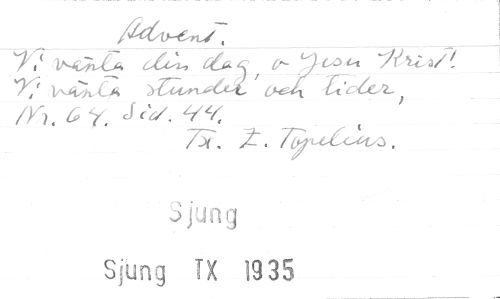 Advent.
Vi vänta din dag, o Jesu Krist!
Vi vänta stunder och tider,
Nr. 64. Sid. 44.
Tx. Z. Topelius.
Sjung
Sjung TX 1935